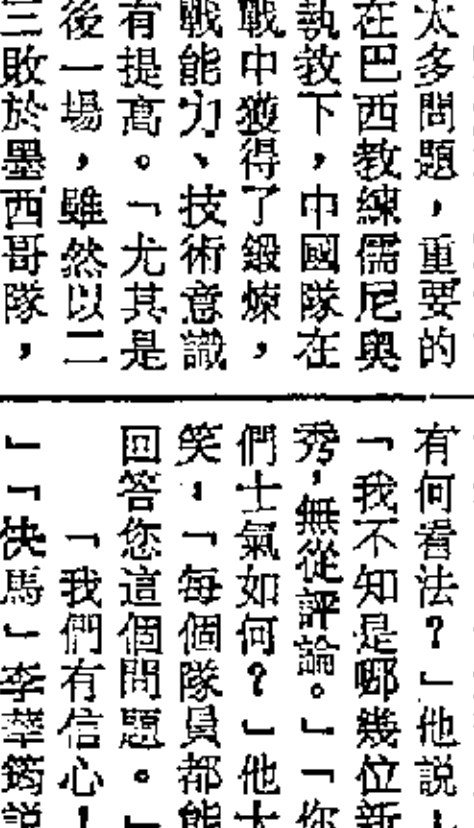 太多問題，重要的
在巴西教練儒尼奥
執教下，中國隊在
戰中獲得了鍛煉，
戰能力、技術意識
有提高。「尤其是
後一場，雖然以二
三敗於墨西哥隊，
有何看法？」他説
「我不知是哪幾位新
秀，無從評論。」「你
們士氣如何？」他大
笑，「每個隊員都能
回答您這個問題。」
「我們有信心！
」「快馬」李華筠説